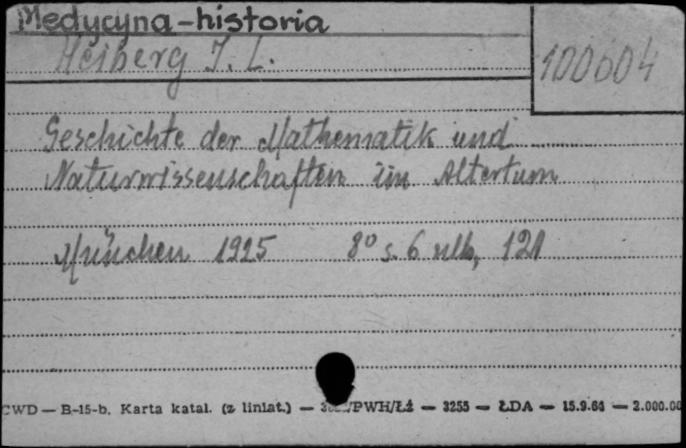 Medycyna-historia
Heiberg J. L.
100604
Geschichte der Mathematik und
Naturwissenschaften im Altertum
München 1925 8° s. 6 nlb, 121
CWD — B-15-b. Karta katal. (z liniat.) — /PWH/Łż — 3255 — ŁDA — 15.9.64 — 2.000.00